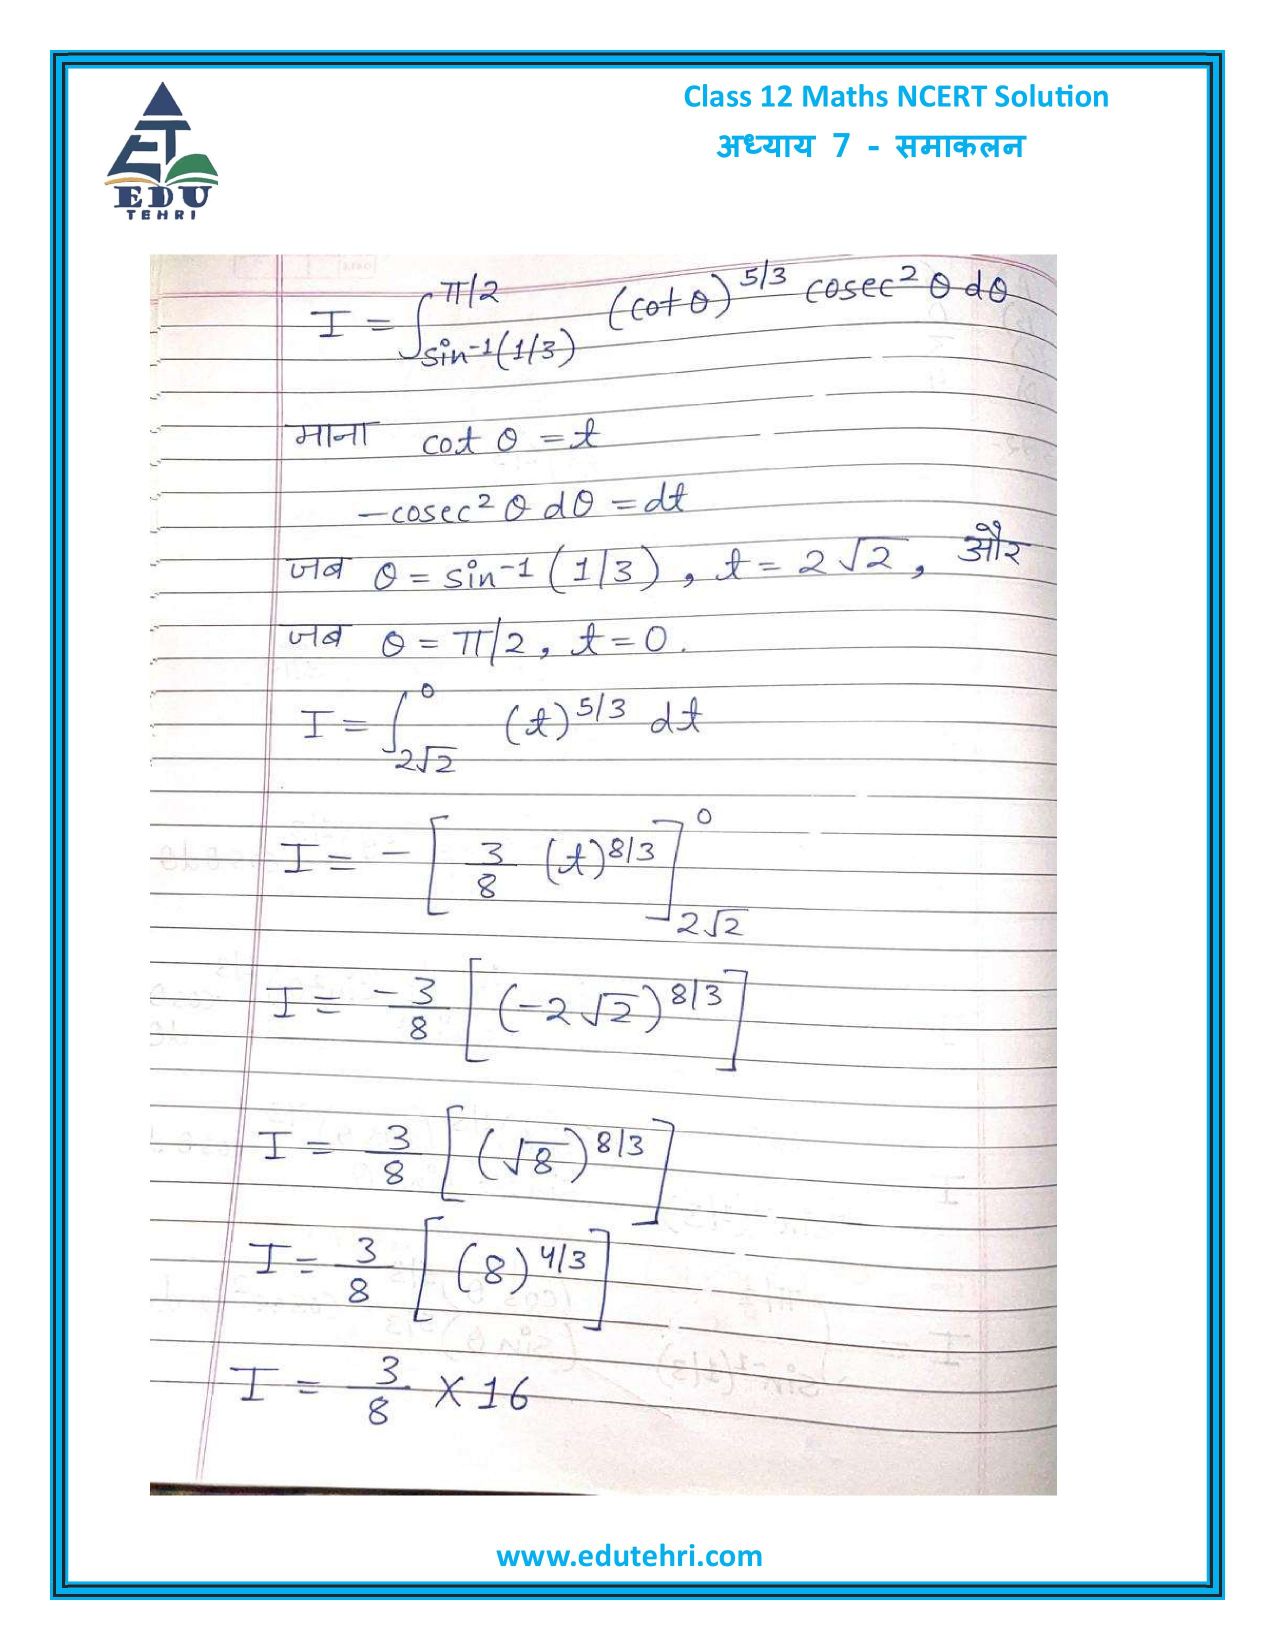 Class 12 Maths NCERT Solution
अध्याय 7 - समाकलन
EDU
TEHRI
I = ∫_{sin⁻¹(1/3)}^{π/2} (cot θ)^{5/3} cosec² θ dθ
माना cot θ = t
-cosec² θ dθ = dt
जब θ = sin⁻¹(1/3), t = 2√2, और
जब θ = π/2, t = 0.
I = ∫_{2√2}^{0} (t)^{5/3} dt
I = - [ 3/8 (t)^{8/3} ]_{2√2}^{0}
I = -3/8 [ (-2√2)^{8/3} ]
I = 3/8 [ (√8)^{8/3} ]
I = 3/8 [ (8)^{4/3} ]
I = 3/8 × 16
www.edutehri.com